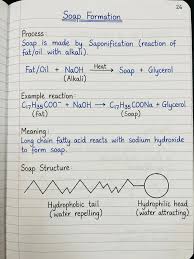 26
Soap Formation
Process :
Soap is made by Saponification (reaction of
fat/oil with alkali).
Fat/Oil + NaOH Heat → Soap + Glycerol
(Alkali)
Example reaction :
C₁₇H₃₅COO⁻ + NaOH → C₁₇H₃₅COONa + Glycerol
(Fat) (Soap)
Meaning :
Long chain fatty acid reacts with sodium hydroxide
to form soap.
Soap Structure
Hydrophobic tail Hydrophilic head
(water repelling) (water attracting)